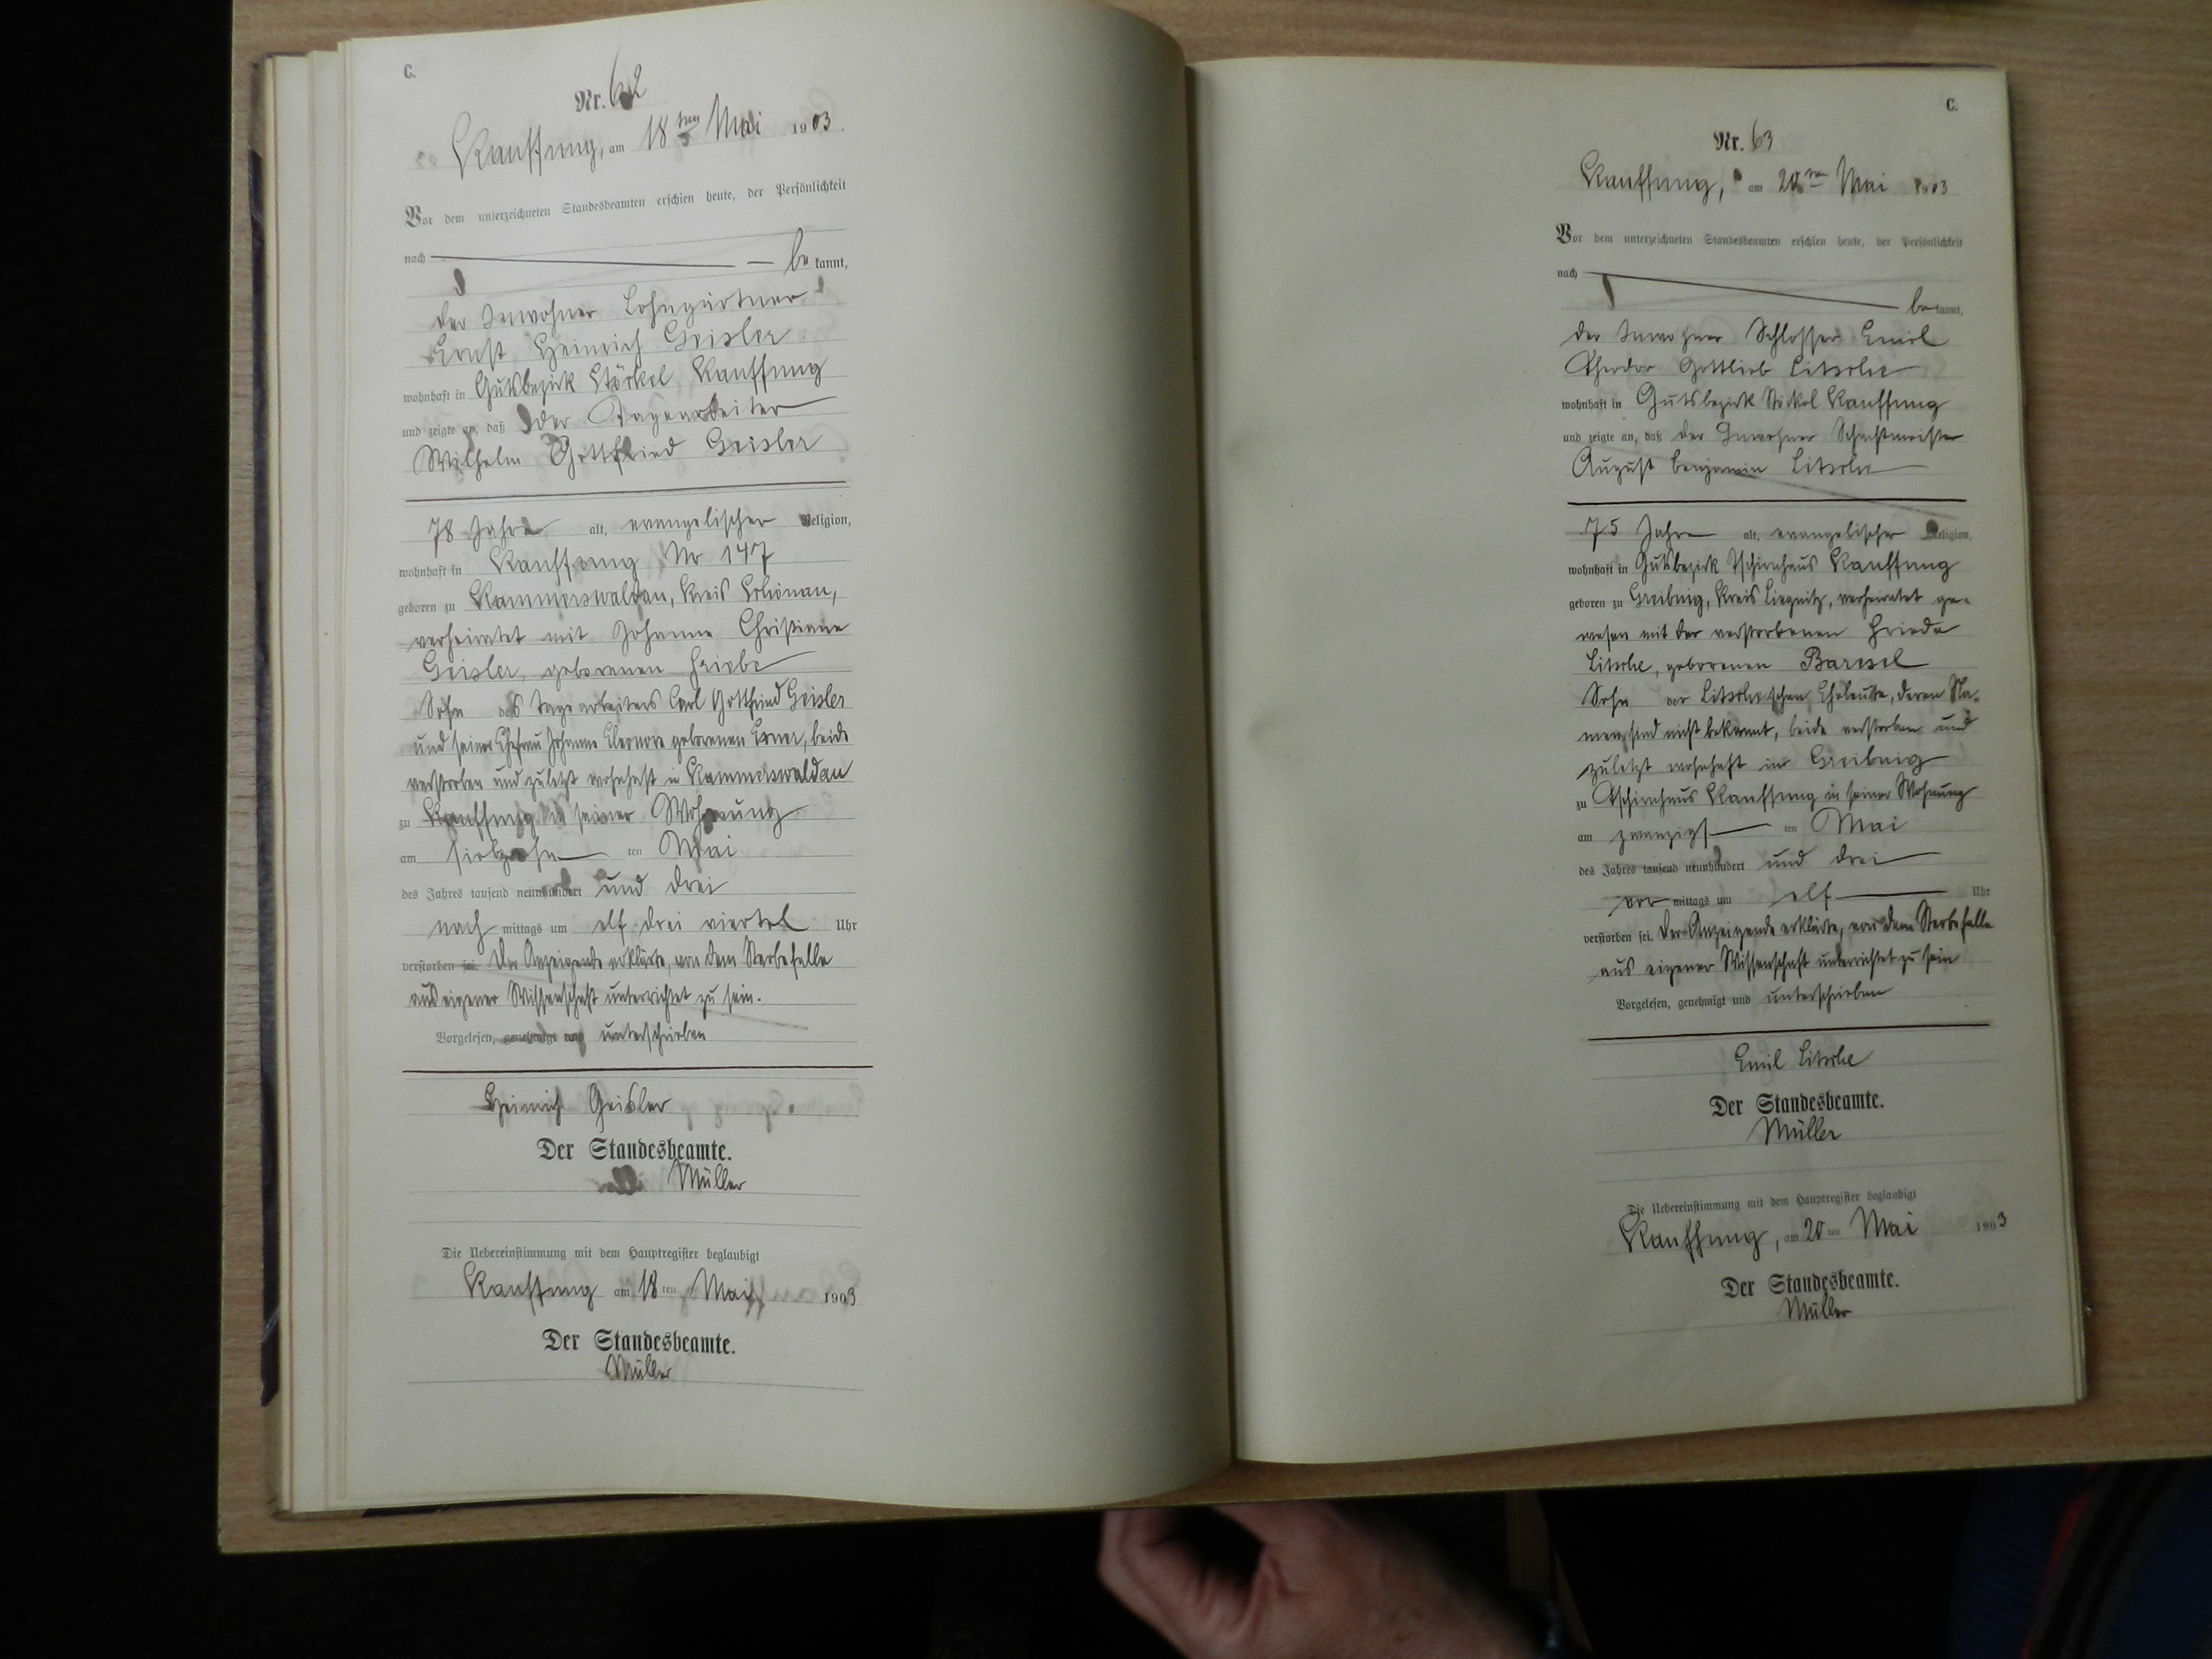 C.
Nr. 62
Kauffung, am 18ten Mai 1903.
Vor dem unterzeichneten Standesbeamten erschien heute, der Persönlichkeit
nach be kannt,
der Inwohner Lohngärtner
Ernst Heinrich Geisler
wohnhaft in Gutsbezirk Stöckel Kauffung
und zeigte an, daß der Tagearbeiter
Wilhelm Gottfried Geisler
78 Jahre alt, evangelischer Religion,
wohnhaft in Kauffung Nr 147
geboren zu Kammerswaldau, Kreis Schönau,
verheiratet mit Johanne Christiane
Geisler, geborenen Friebe
Sohn des Tagearbeiters Carl Gottfried Geisler
und seiner Ehefrau Johanne Eleonore geborenen, beide
verstorben und zuletzt wohnhaft in Kammerswaldau
zu Kauffung in seiner Wohnung
am siebzehn ten Mai
des Jahres tausend neunhundert und drei
nach mittags um elf drei viertel Uhr
verstorben sei. Der Anzeigende erklärte, von dem Sterbefalle
aus eigener Wissenschaft unterrichtet zu sein.
Vorgelesen, genehmigt und unterschrieben
Heinrich Geisler
Der Standesbeamte.
Müller
Die Uebereinstimmung mit dem Hauptregister beglaubigt
Kauffung am 18ten Mai 1903
Der Standesbeamte.
Müller
C.
Nr. 63
Kauffung, am 20ten Mai 1903
Vor dem unterzeichneten Standesbeamten erschien heute, der Persönlichkeit
nach be kannt,
der Inwohner Schlosser Emil
Theodor Gottlieb Litsche
wohnhaft in Gutsbezirk Stöckel Kauffung
und zeigte an, daß der Inwohner Schachtmeister
August Benjamin Litsche
75 Jahre alt, evangelischer Religion,
wohnhaft in Gutsbezirk Tschirnhaus Kauffung
geboren zu Greibnig, Kreis Liegnitz, verheiratet ge-
wesen mit der verstorbenen Frieda
Litsche, geborenen
Sohn der Litsche'schen Eheleute, deren Na-
men sind nicht bekannt, beide verstorben und
zuletzt wohnhaft in Greibnig
zu Tschirnhaus Kauffung in seiner Wohnung
am zwanzigs ten Mai
des Jahres tausend neunhundert und drei
vor mittags um elf Uhr
verstorben sei. Der Anzeigende erklärte, von dem Sterbefalle
aus eigener Wissenschaft unterrichtet zu sein
Vorgelesen, genehmigt und unterschrieben
Emil Litsche
Der Standesbeamte.
Müller
Die Uebereinstimmung mit dem Hauptregister beglaubigt
Kauffung, am 20ten Mai 1903
Der Standesbeamte.
Müller